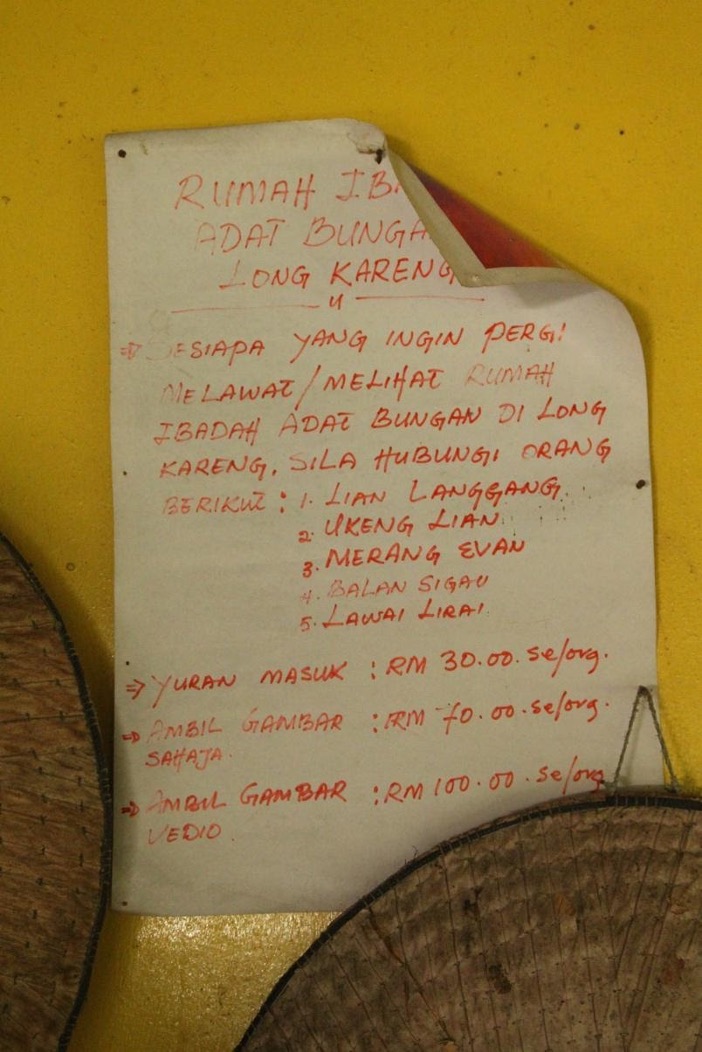 RUMAH IB
ADAT BUNGA
LONG KARENG
⇒ SESIAPA YANG INGIN PERGI
MELAWAT/MELIHAT RUMAH
IBADAH ADAT BUNGAN DI LONG
KARENG, SILA HUBUNGI ORANG
BERIKUT : 1. LIAN LANGGANG
2. UKENG LIAN
3. MERANG EVAN
4. BALAN SIGAU
5. LAWAI LIRAI.
⇒ YURAN MASUK : RM 30.00. se/org.
⇒ AMBIL GAMBAR : RM 70.00. se/org.
SAHAJA.
⇒ AMBIL GAMBAR : RM 100.00. se/org
VEDIO.